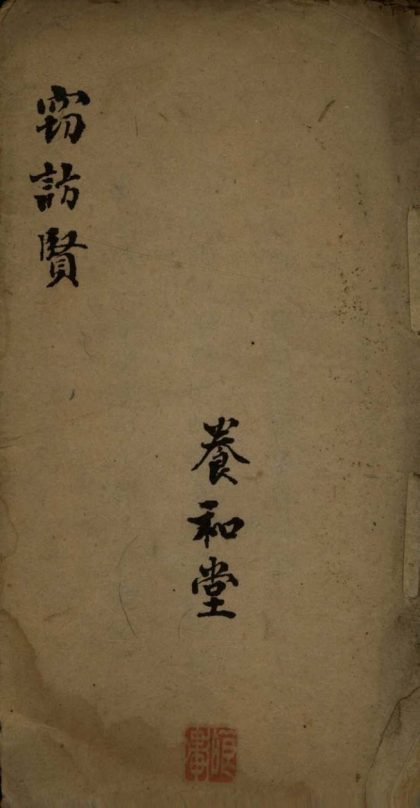 窃訪賢
養和堂